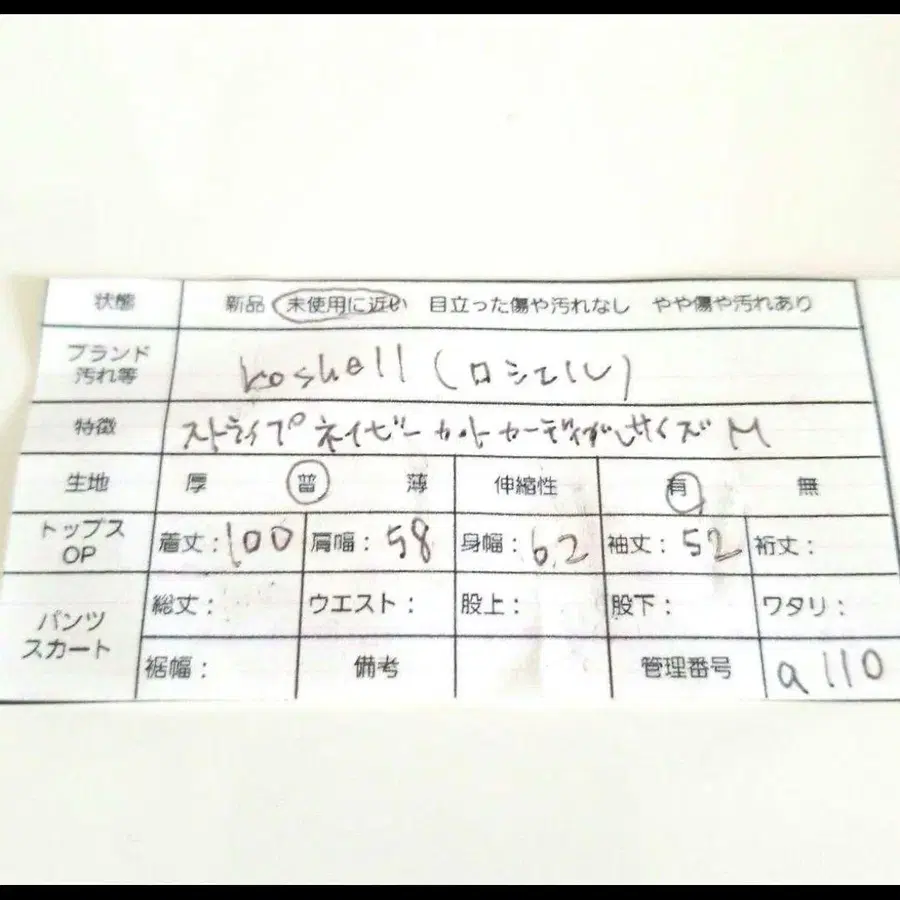 状態 新品 未使用に近い 目立った傷や汚れなし やや傷や汚れあり
ブランド
汚れ等 roshell (ロシェル)
特徴 ストライプ ネイビー カット カーディガン サイズ M
生地 厚 普 薄 伸縮性 有 無
トップス
OP 着丈:100 肩幅:58 身幅:62 袖丈:52 裄丈:
パンツ
スカート 総丈: ウエスト: 股上: 股下: ワタリ:
裾幅: 備考 管理番号 a110